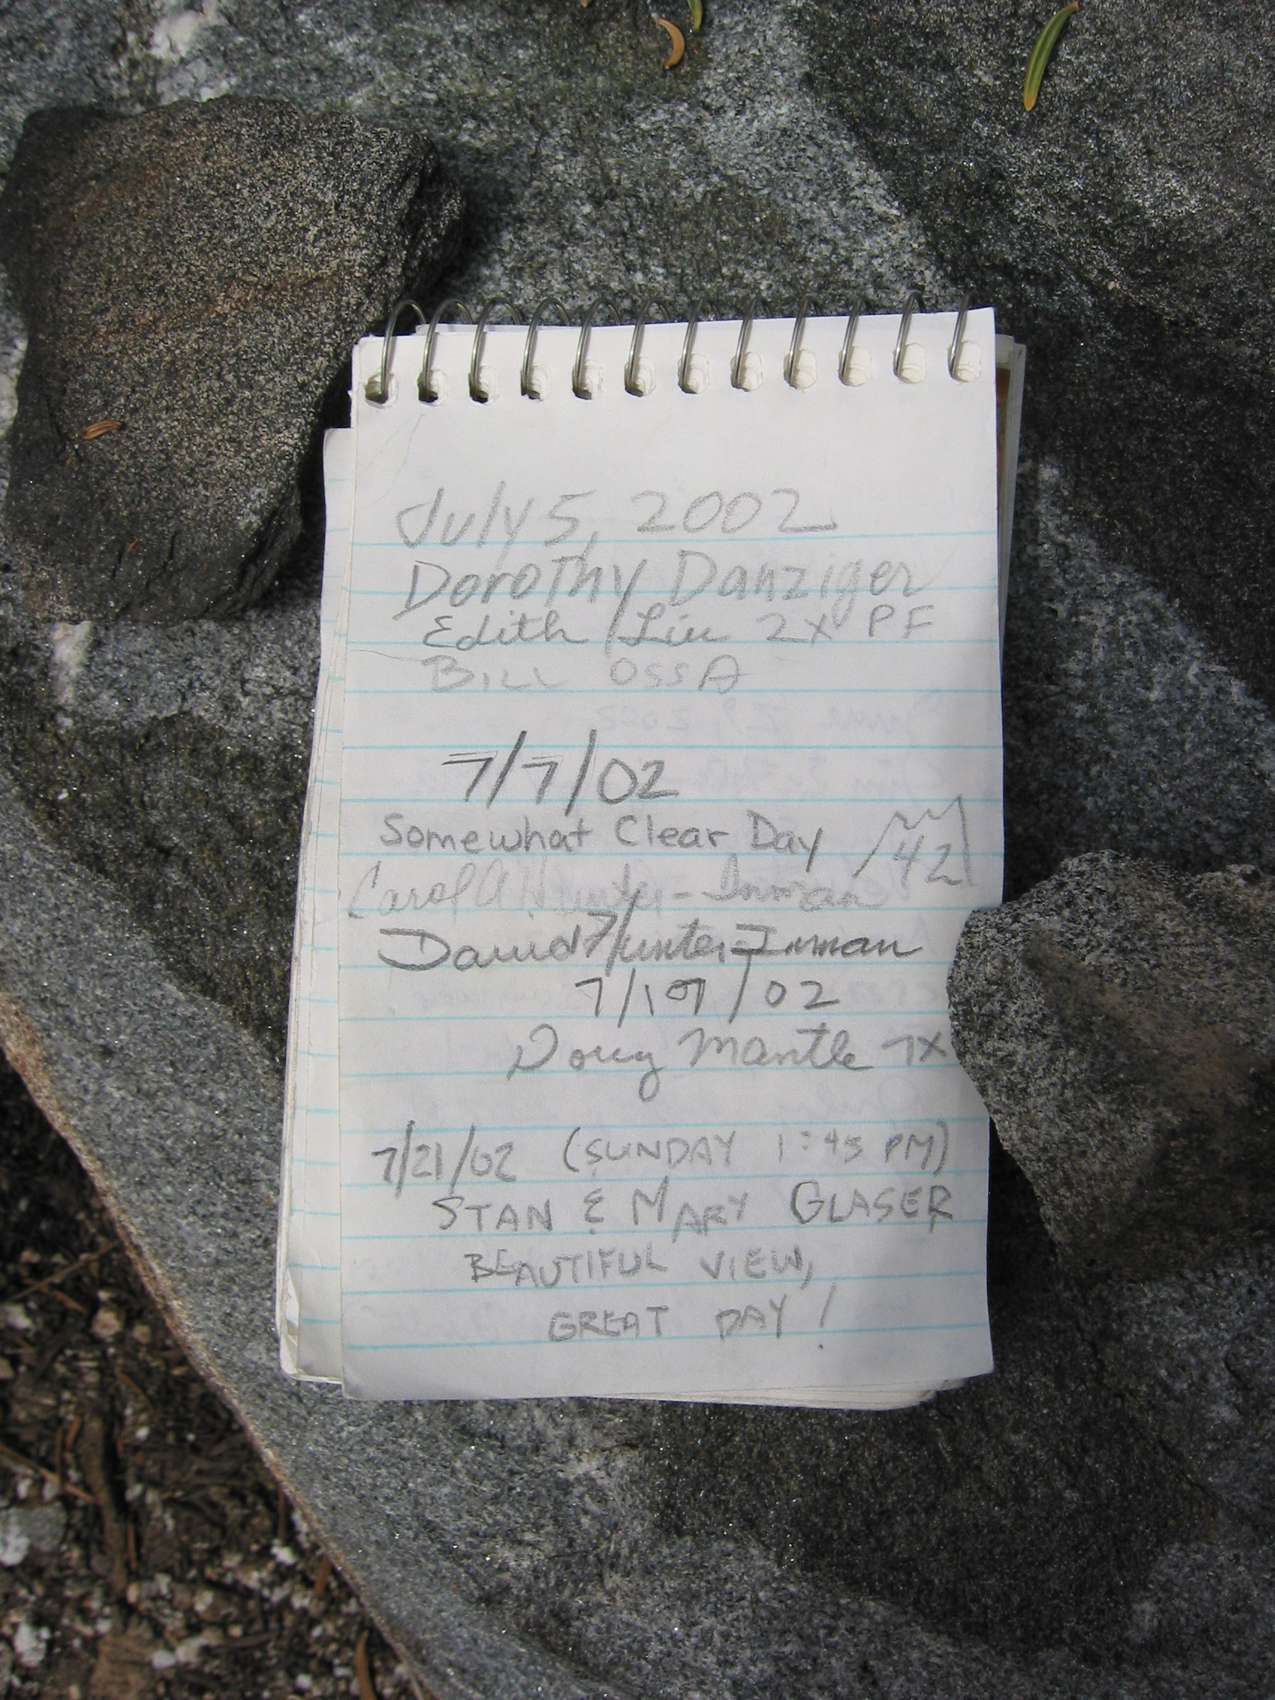 July 5, 2002
Dorothy Danziger
Edith Liu 2x PF
BILL OSSA
7/7/02
Somewhat Clear Day 42
Carol A Hunter-Inman
David Hunter-Inman
7/19/02
Doug Mantle 7x
7/21/02 (SUNDAY 1:45 PM)
STAN & MARY GLASER
BEAUTIFUL VIEW,
GREAT DAY!